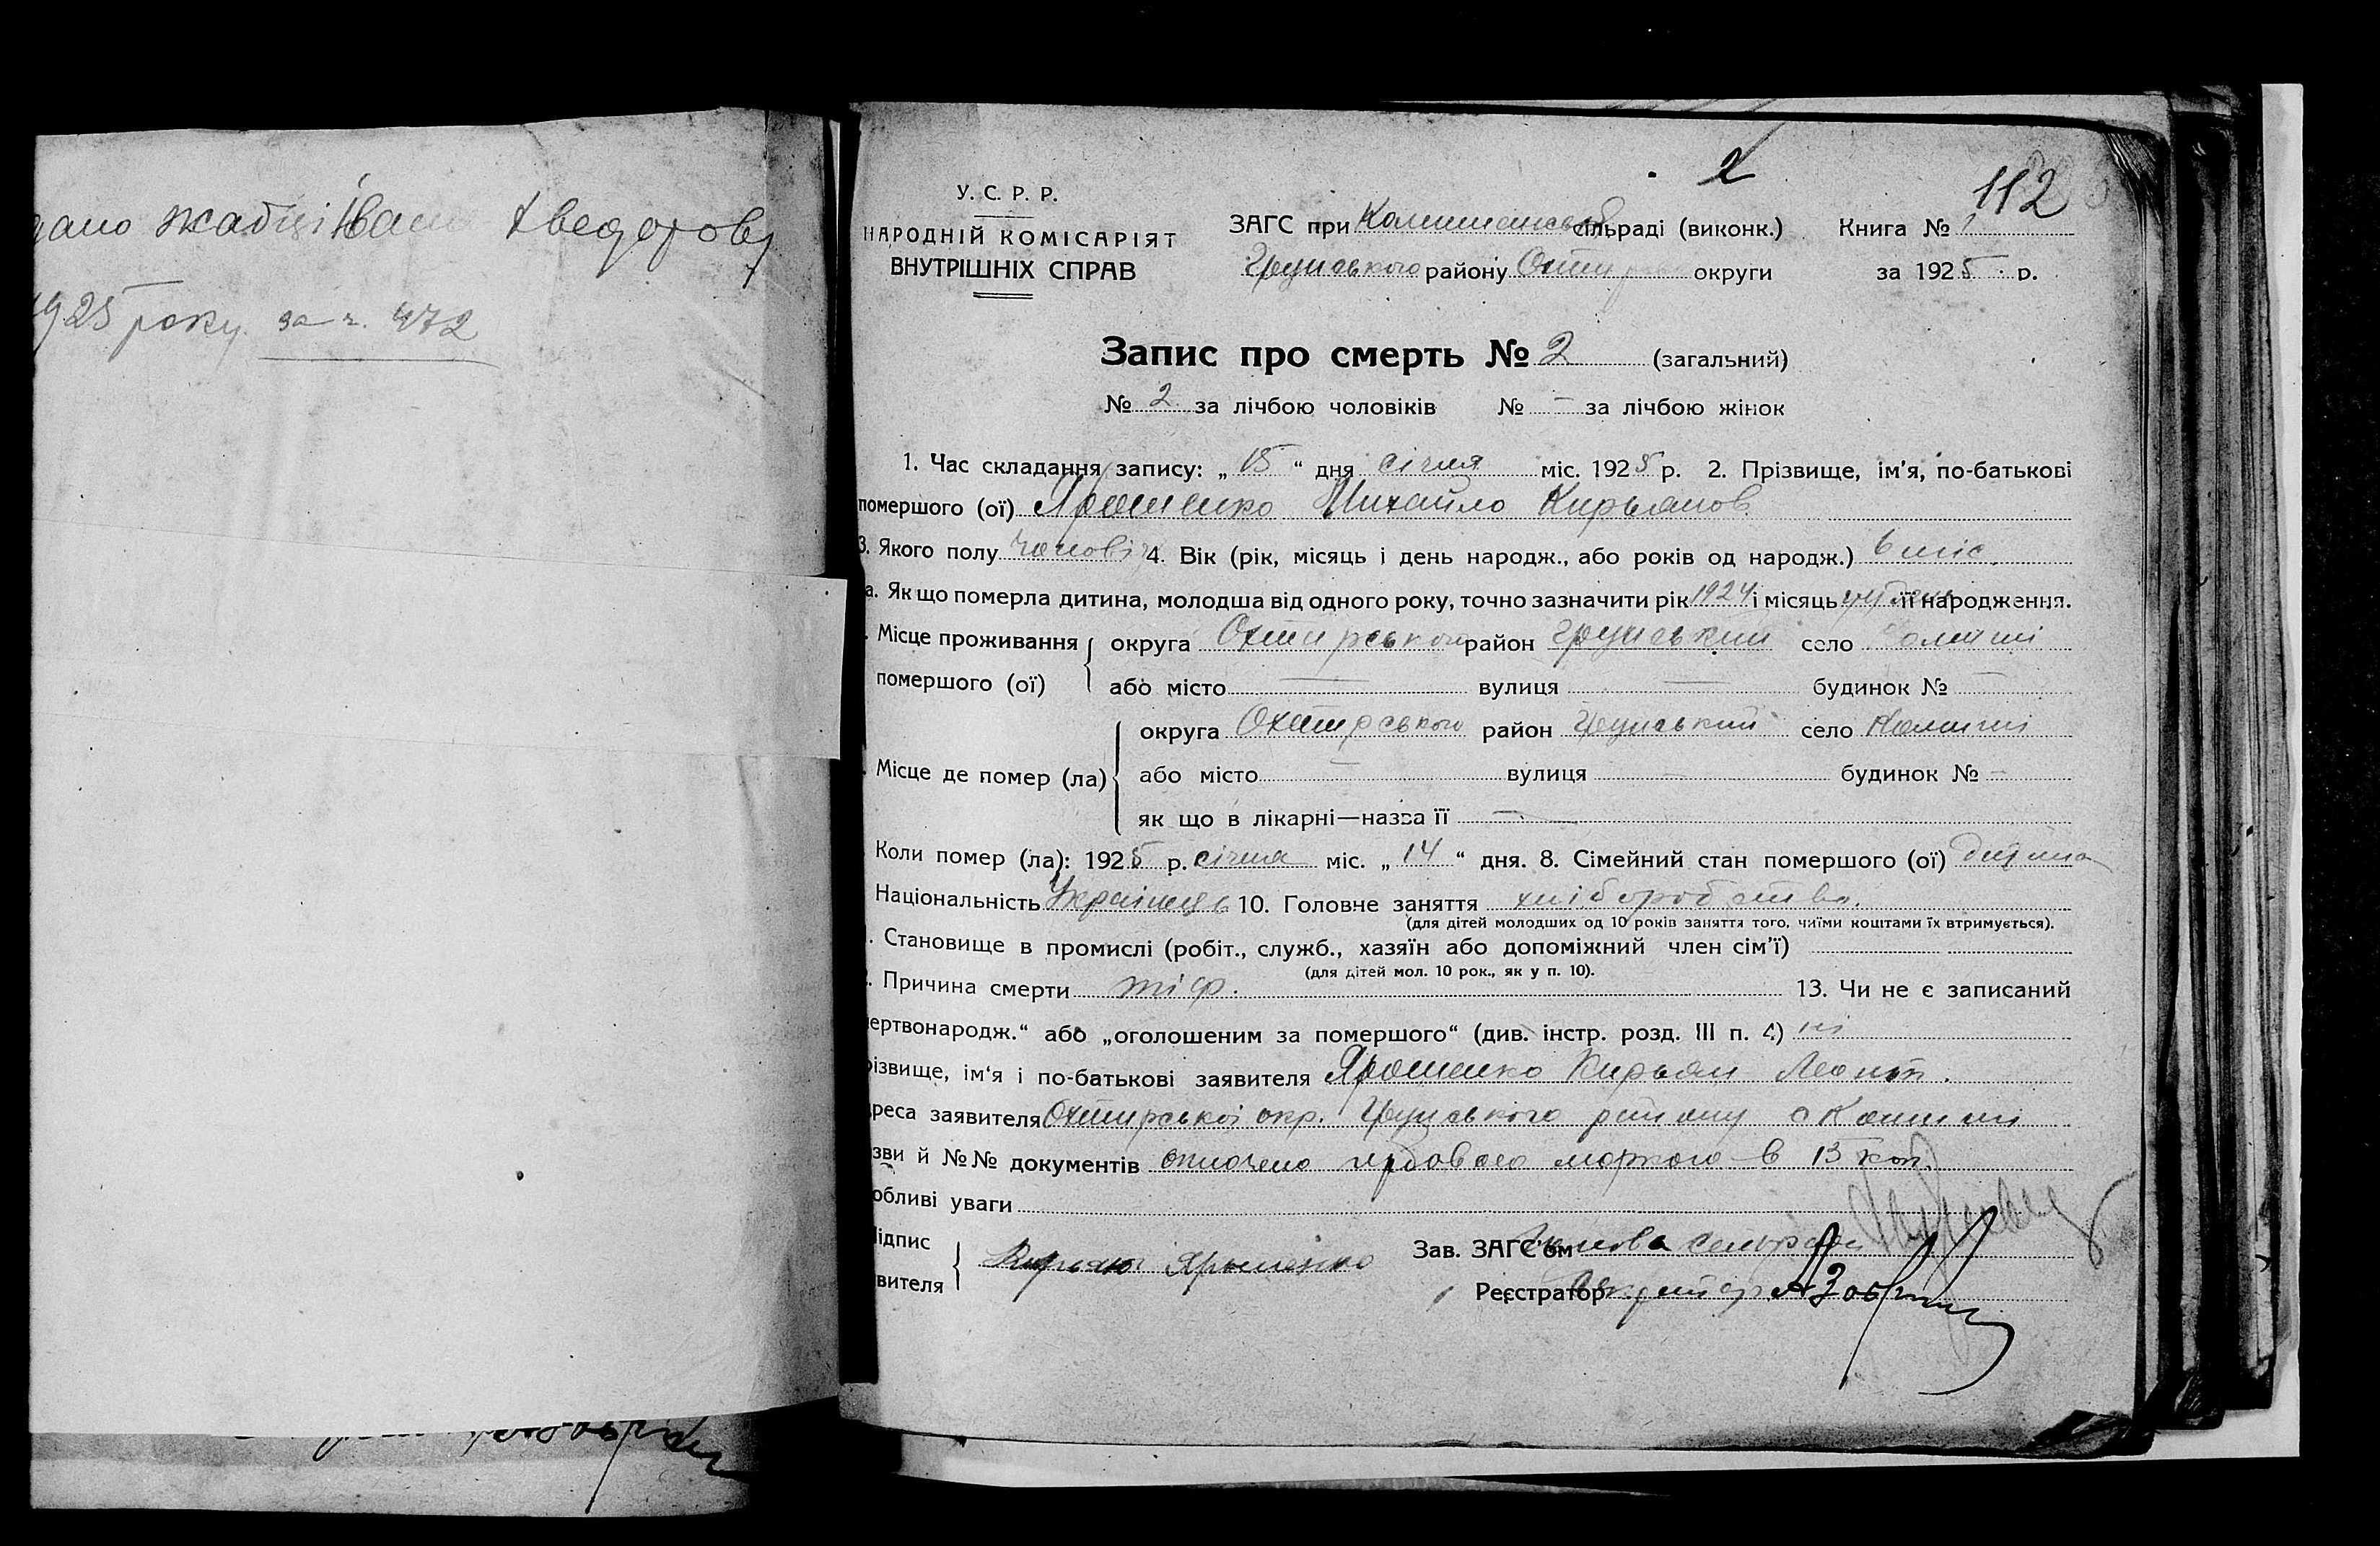 дано Жабці Іван Хведорову
1925 року за ч. 472
2
112
У. С. Р. Р.
НАРОДНІЙ КОМІСАРІЯТ
ВНУТРІШНІХ СПРАВ
ЗАГС при сільраді (виконк.)
Грунського району Охтир округи
Книга № 1
за 1925 р.
Запис про смерть № 2 (загальний)
№ 2 за лічбою чоловіків № — за лічбою жінок
1. Час складання запису: „ 15 “ дня січня міс. 1925 р. 2. Прізвище, ім’я, по-батькові
помершого (ої) Ярошенко Михайло Кирьянов
3. Якого полу чоловіч 4. Вік (рік, місяць і день народж., або років од народж.) 6 міс.
а. Як що померла дитина, молодша від одного року, точно зазначити рік 1924 і місяць її народження.
Місце проживання помершого (ої) округа Охтирського район Грунський село Комиші
або місто — вулиця — будинок № —
Місце де помер (ла) округа Охтирського район Грунський село Комиші
або місто — вулиця — будинок № —
як що в лікарні—назва її —
Коли помер (ла): 1925 р. січня міс. „ 14 “ дня. 8. Сімейний стан помершого (ої) дитина
Національність Українець 10. Головне заняття хліборобство.
(для дітей молодших од 10 років заняття того, чиїми коштами їх втримується).
. Становище в промислі (робіт., служб., хазяїн або допоміжний член сім’ї)
(для дітей мол. 10 рок., як у п. 10).
. Причина смерти тіф. 13. Чи не є записаний
ертвонародж.“ або „оголошеним за помершого“ (див. інстр. розд. III п. 4) ні
різвище, ім‘я і по-батькові заявителя Ярошенко Кирьян Леонт.
дреса заявителя Охтирської окр. Грунського району с Комиші
зви й №№ документів оплочено гербовою маркою в 15 коп.
обливі уваги
ідпис
вителя
Кирьян Ярошенко
Зав. ЗАГС‘ом Голова сельради
Реєстратор Секретар